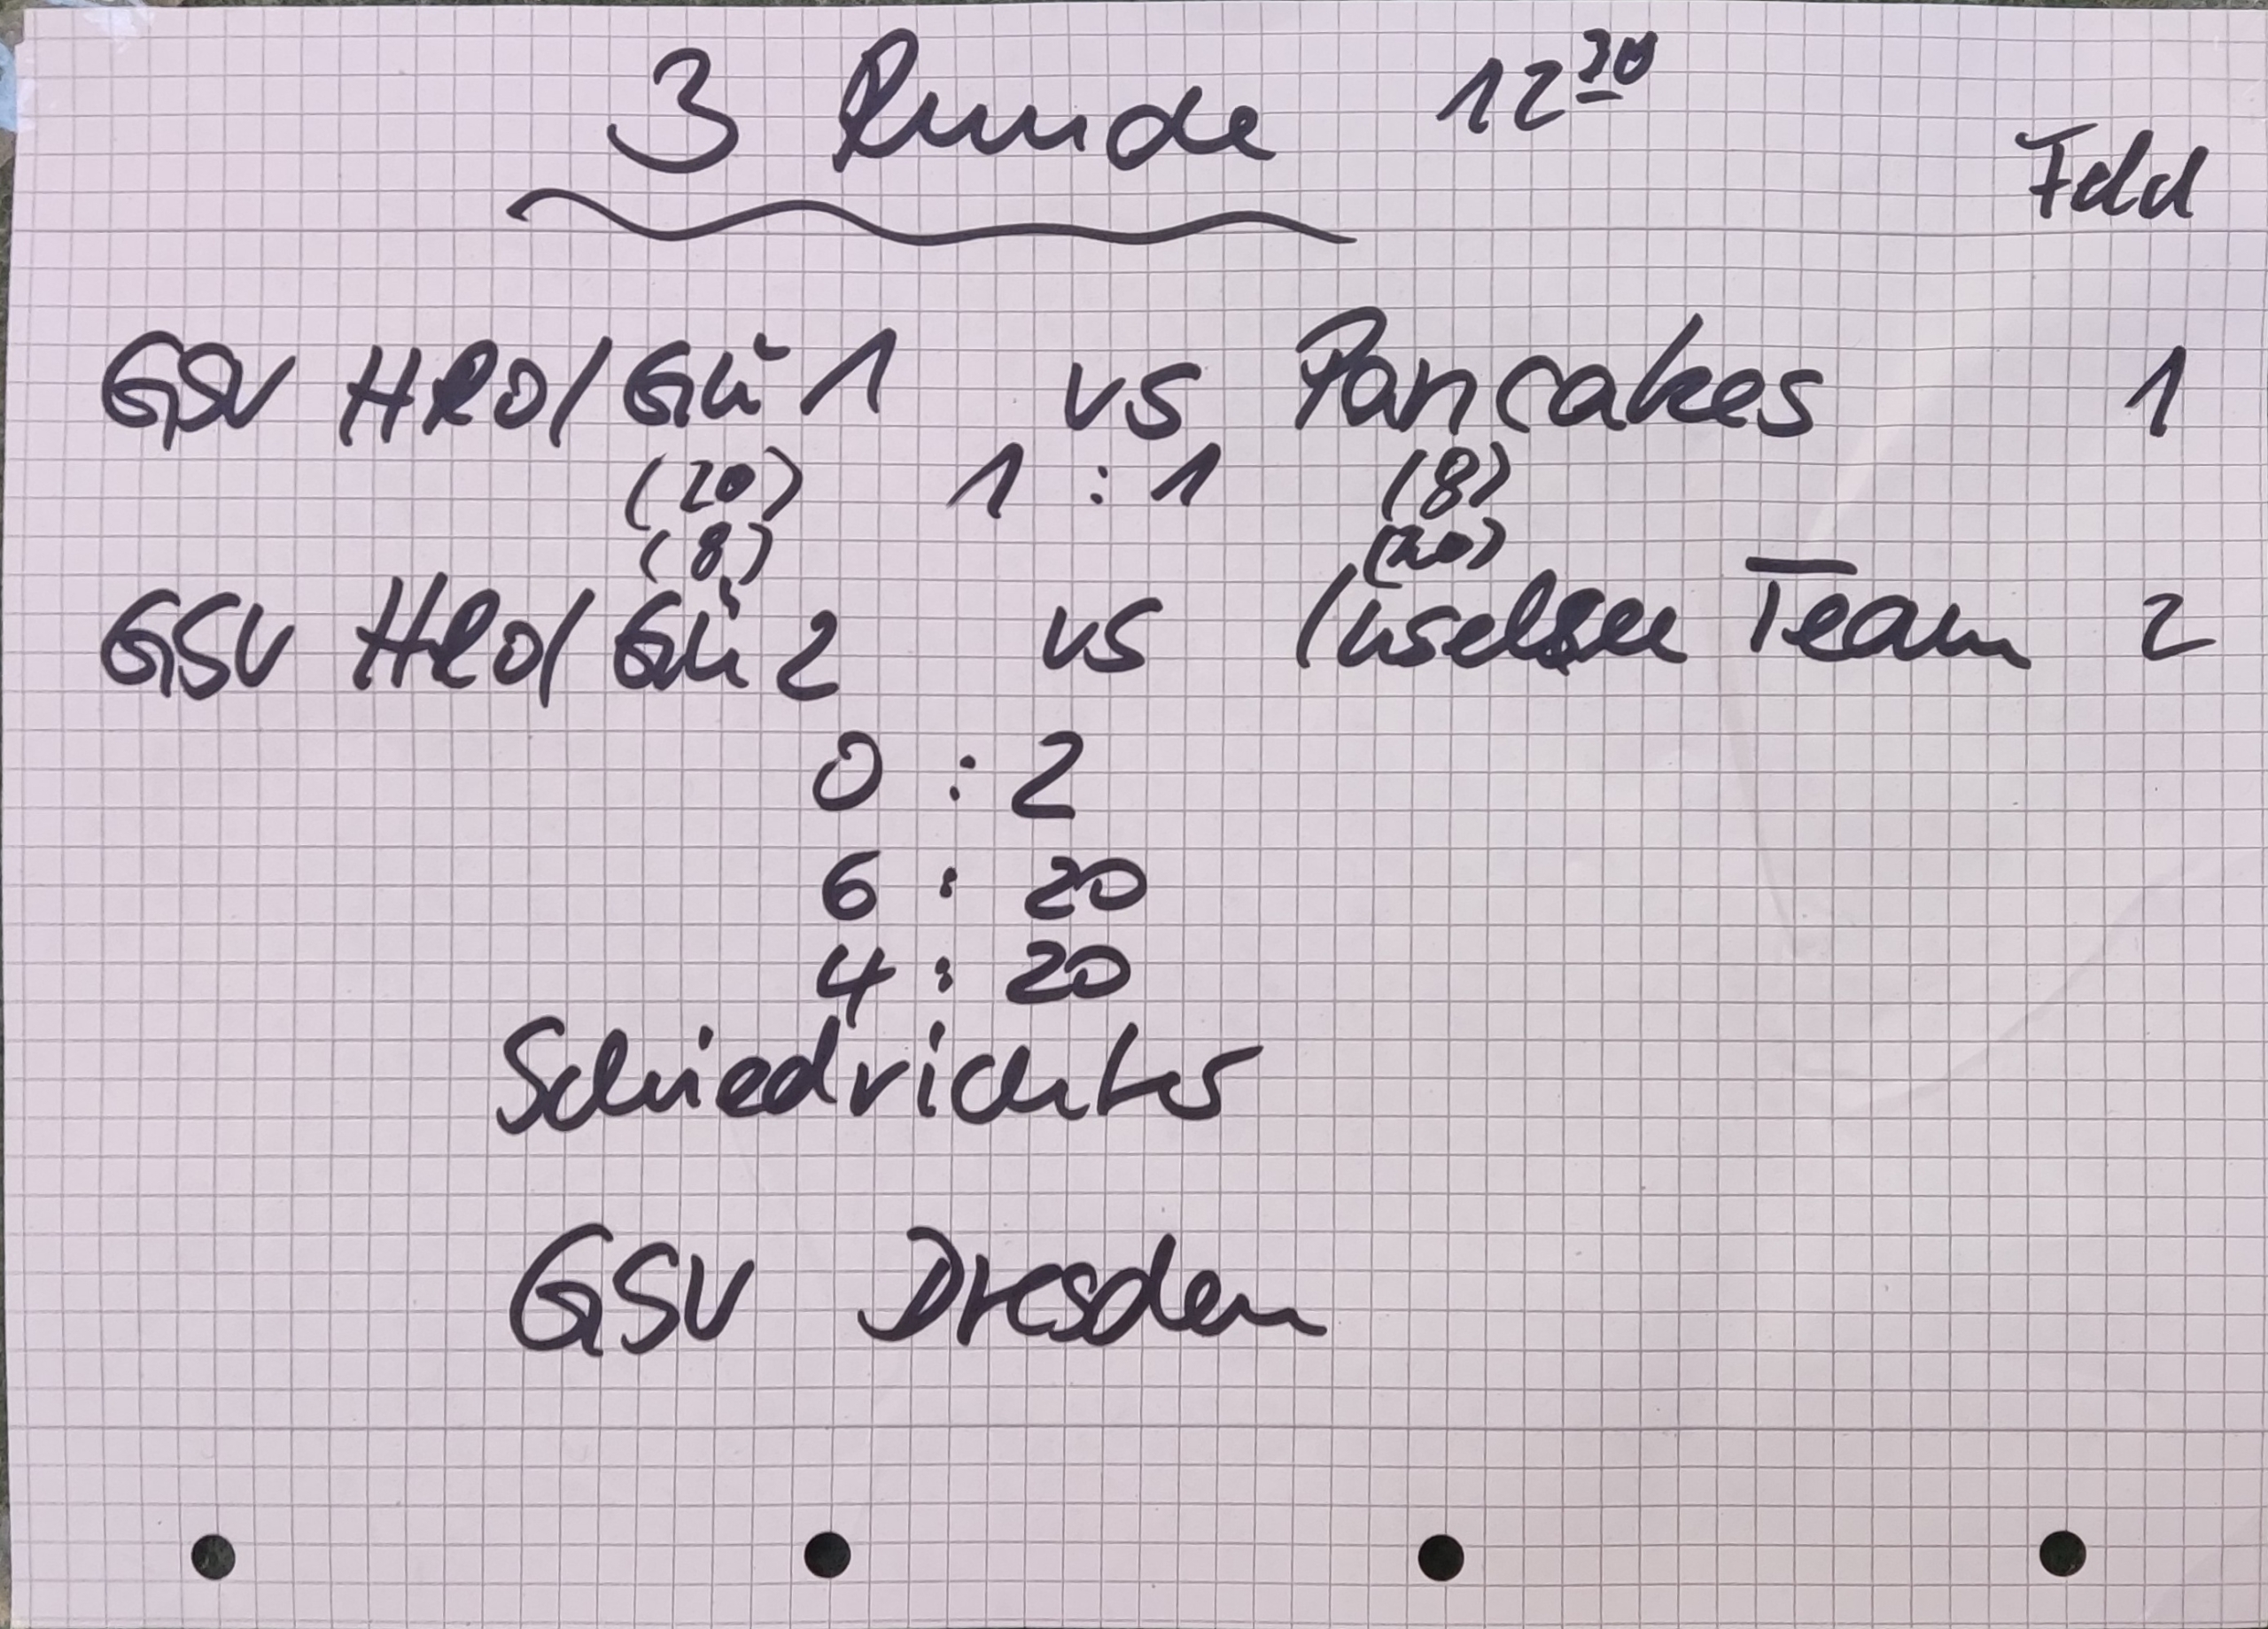 3 Runde 12³⁰
Feld
GSV HRO/Gü 1 vs Pancakes 1
(20) 1 : 1 (8)
(8) (20)
GSV HRO/Gü 2 vs Inselsee Team 2
0 : 2
6 : 20
4 : 20
Schiedrichter
GSV Dresden